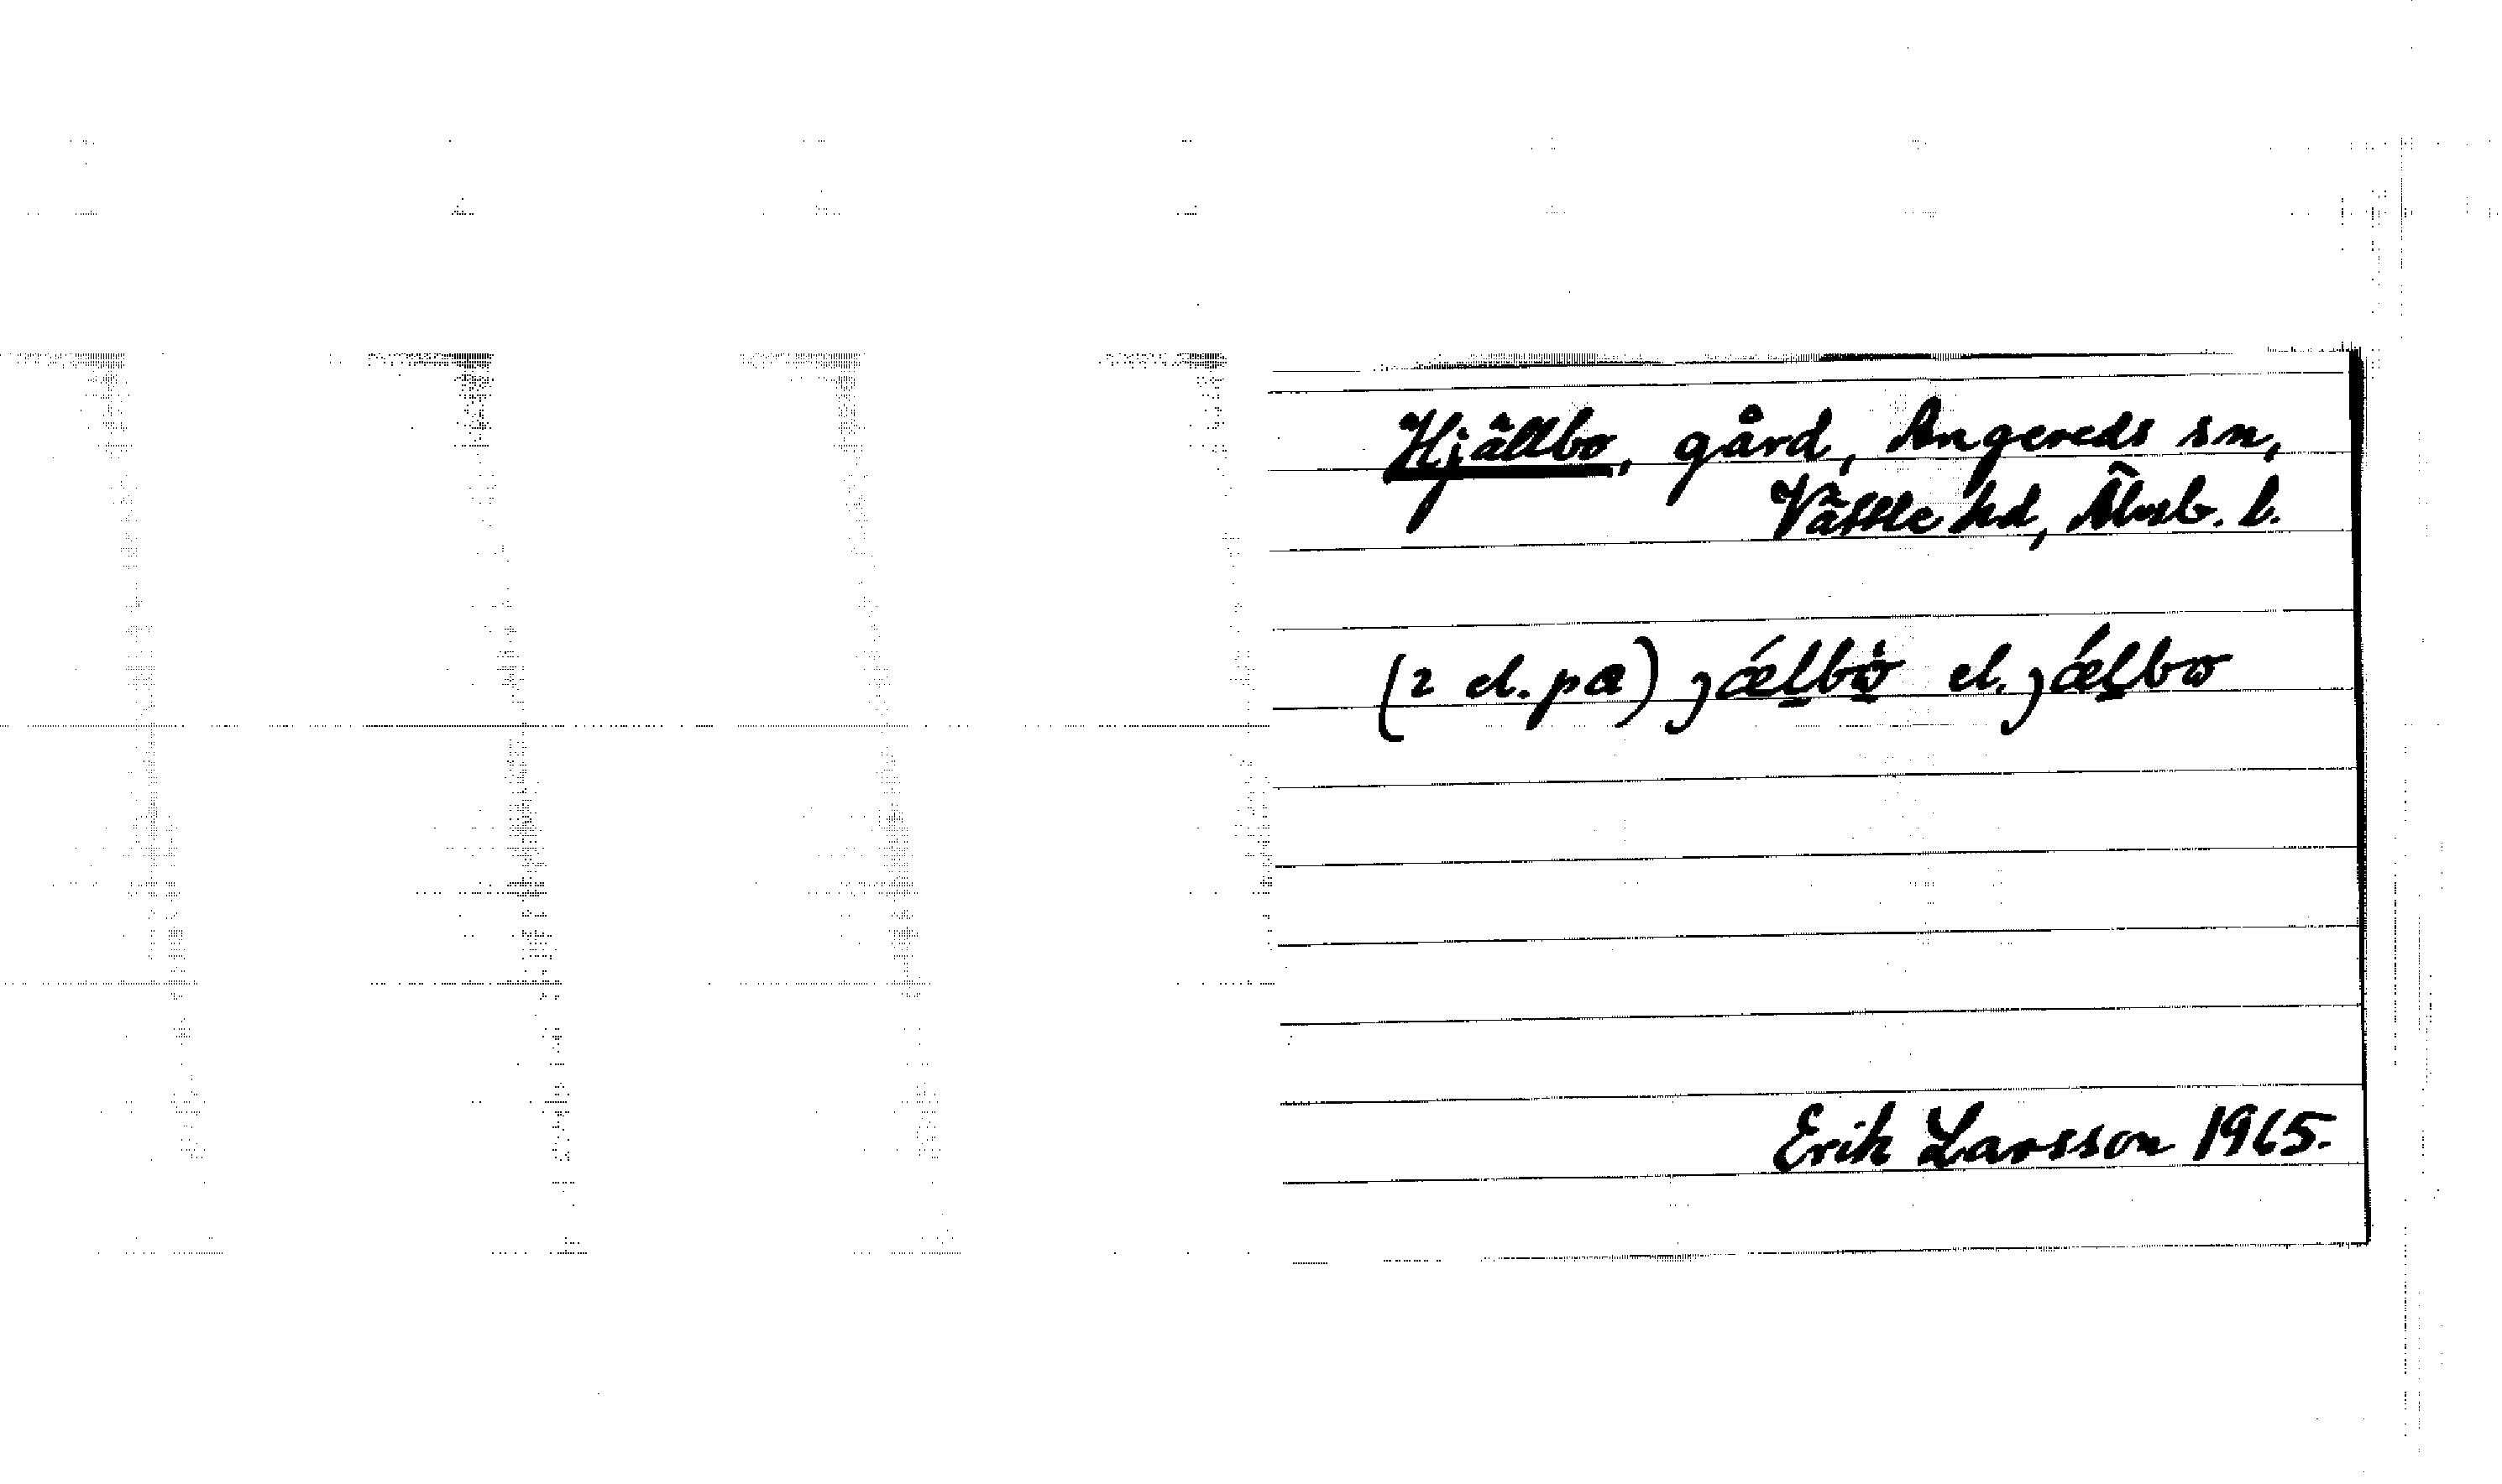 Hjällbo, gård, Angereds sn,
Vättle hd, Älvsb. l.
(2 el. pa) jǽl̠bò̠ el. jǽl̠bo
Erik Larsson 1965.